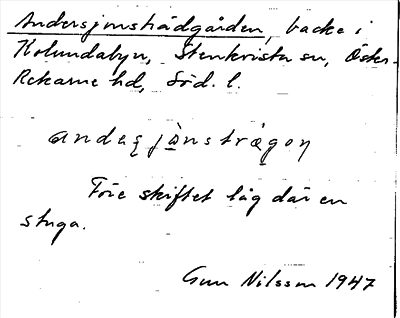 Andersjonsträdgården, backe i
Kolundabyn, Stenkvista sn, Öster-
Rekarne hd, Söd. l.
andaʂjònstrægon
Före skiftet låg där en
stuga.
Gun Nilsson 1947